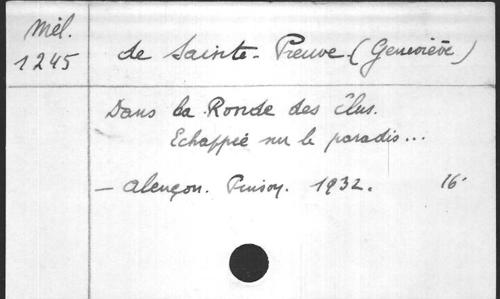 Mél.
1245
de Sainte-Preuve (Geneviève)
Dans la Ronde des élus.
Echappée sur le paradis...
— Alençon. Poisson. 1932. 16°